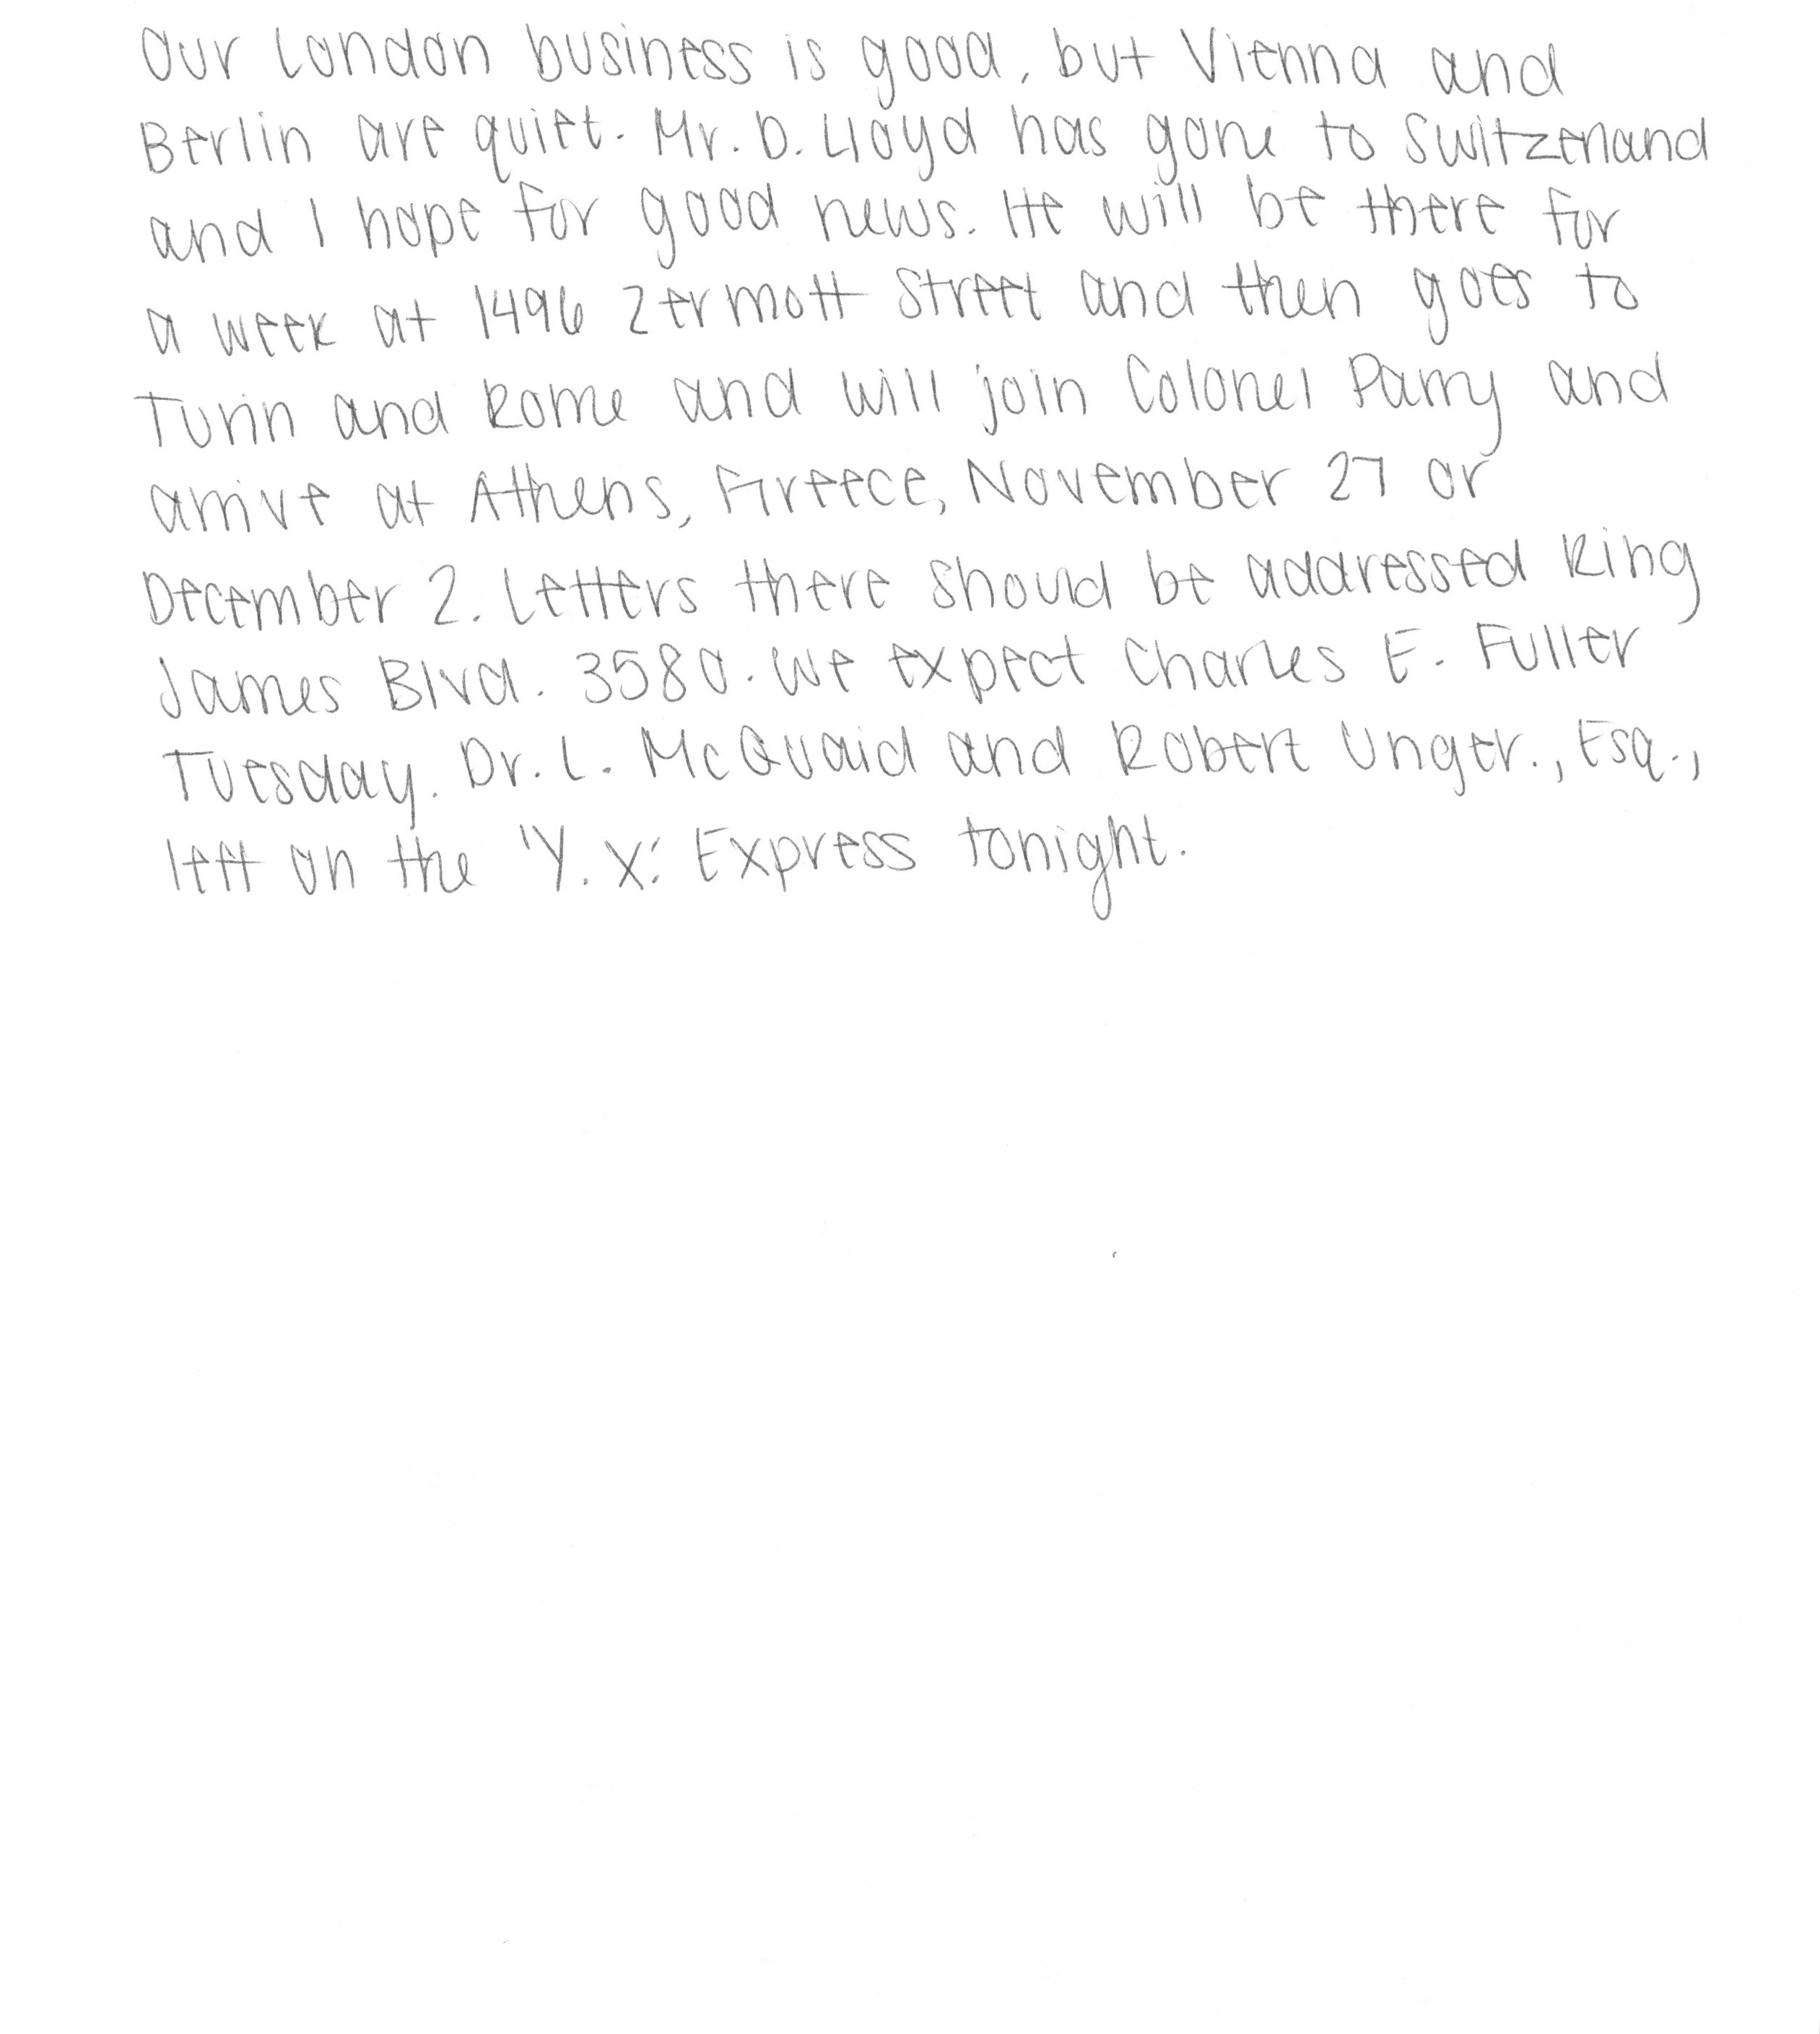 Our London business is good, but Vienna and
Berlin are quiet. Mr. D. Lloyd has gone to Switzerland
and I hope for good news. He will be there for
a week at 1496 Zermott Street and then goes to
Turin and Rome and will join Colonel Parry and
arrive at Athens, Greece, November 27 or
December 2. Letters there should be addressed King
James Blvd. 3580. We expect Charles E. Fuller
Tuesday. Dr. L. McQuaid and Robert Unger., Esq.,
left on the 'Y. X.' Express tonight.